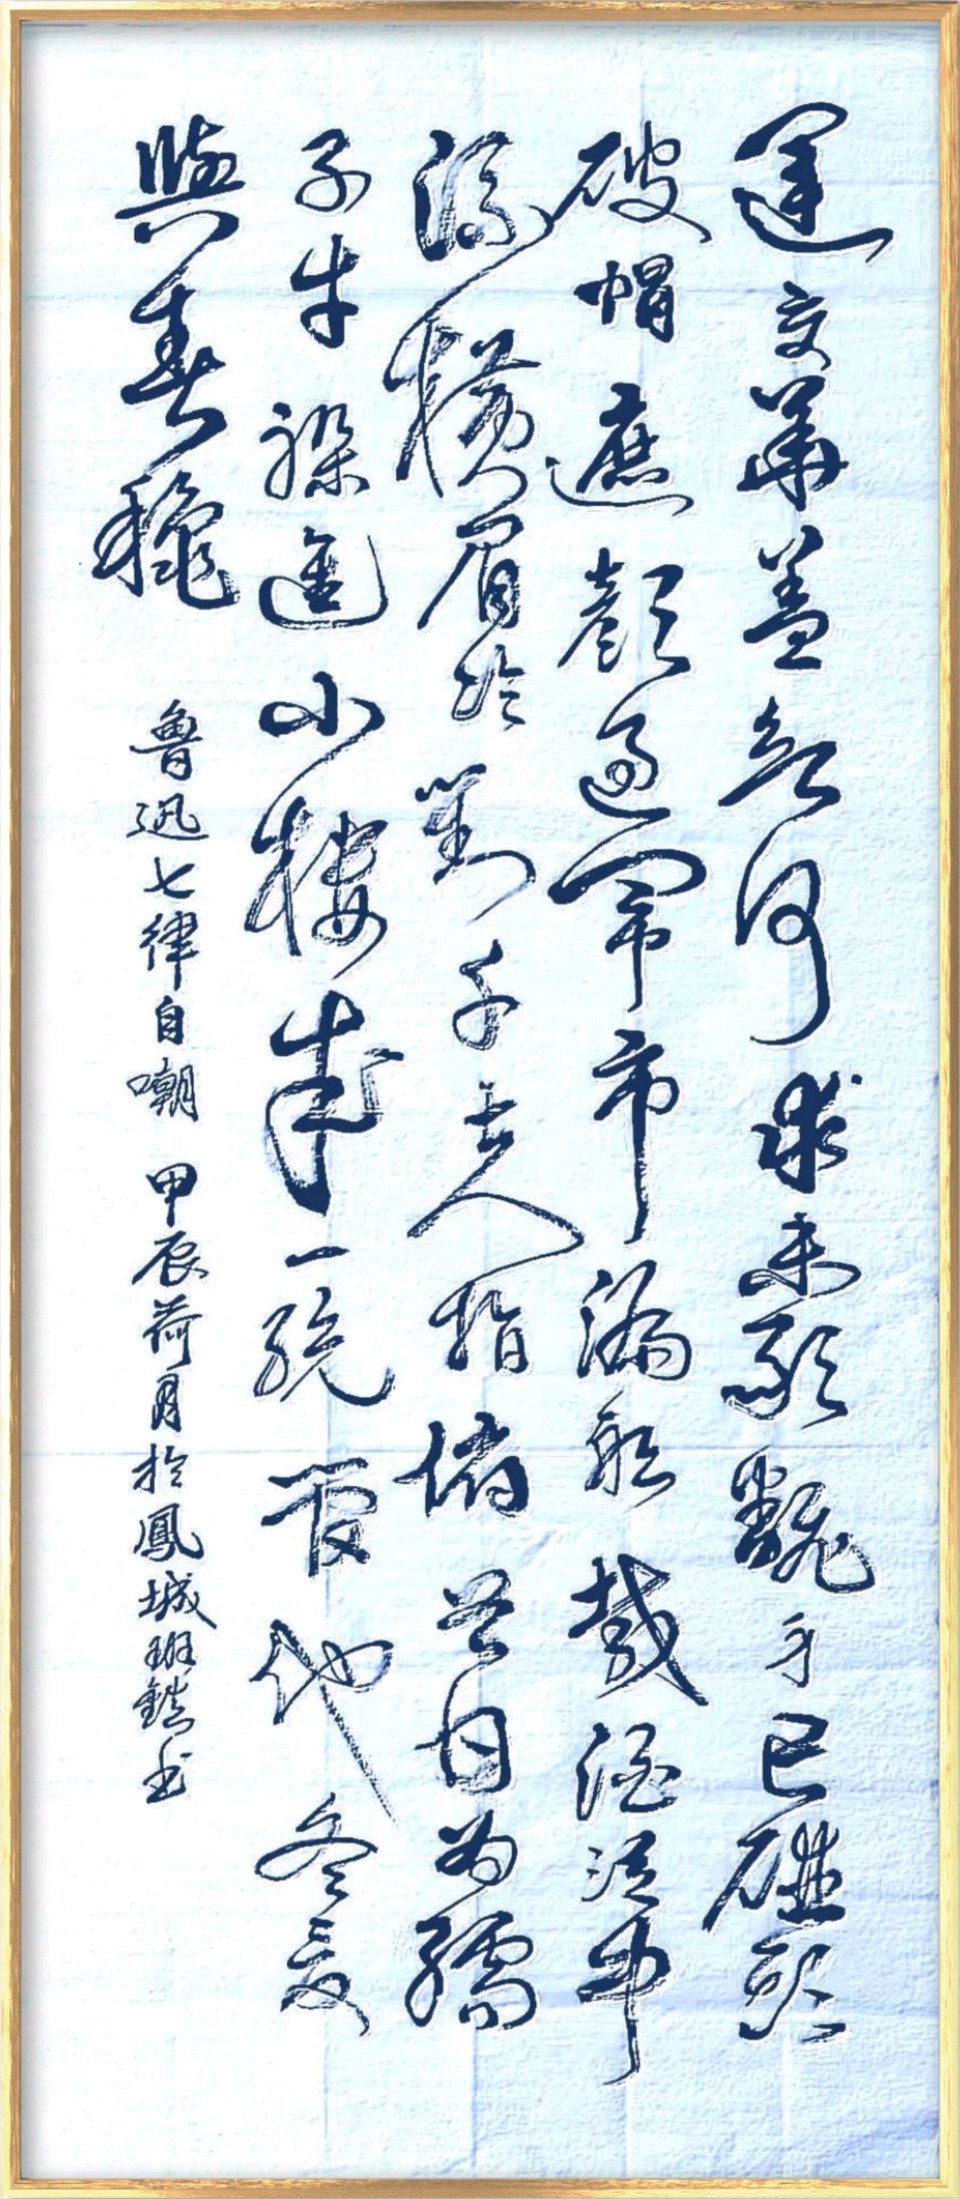 運交華蓋欲何求未敢飜身已碰頭
破帽遮顏過鬧市漏船載酒泛中
流橫眉冷對千夫指俯首甘為孺
子牛躲進小樓成一統管他冬夏
與春穐
魯迅七律自嘲 甲辰荷月於鳳城书